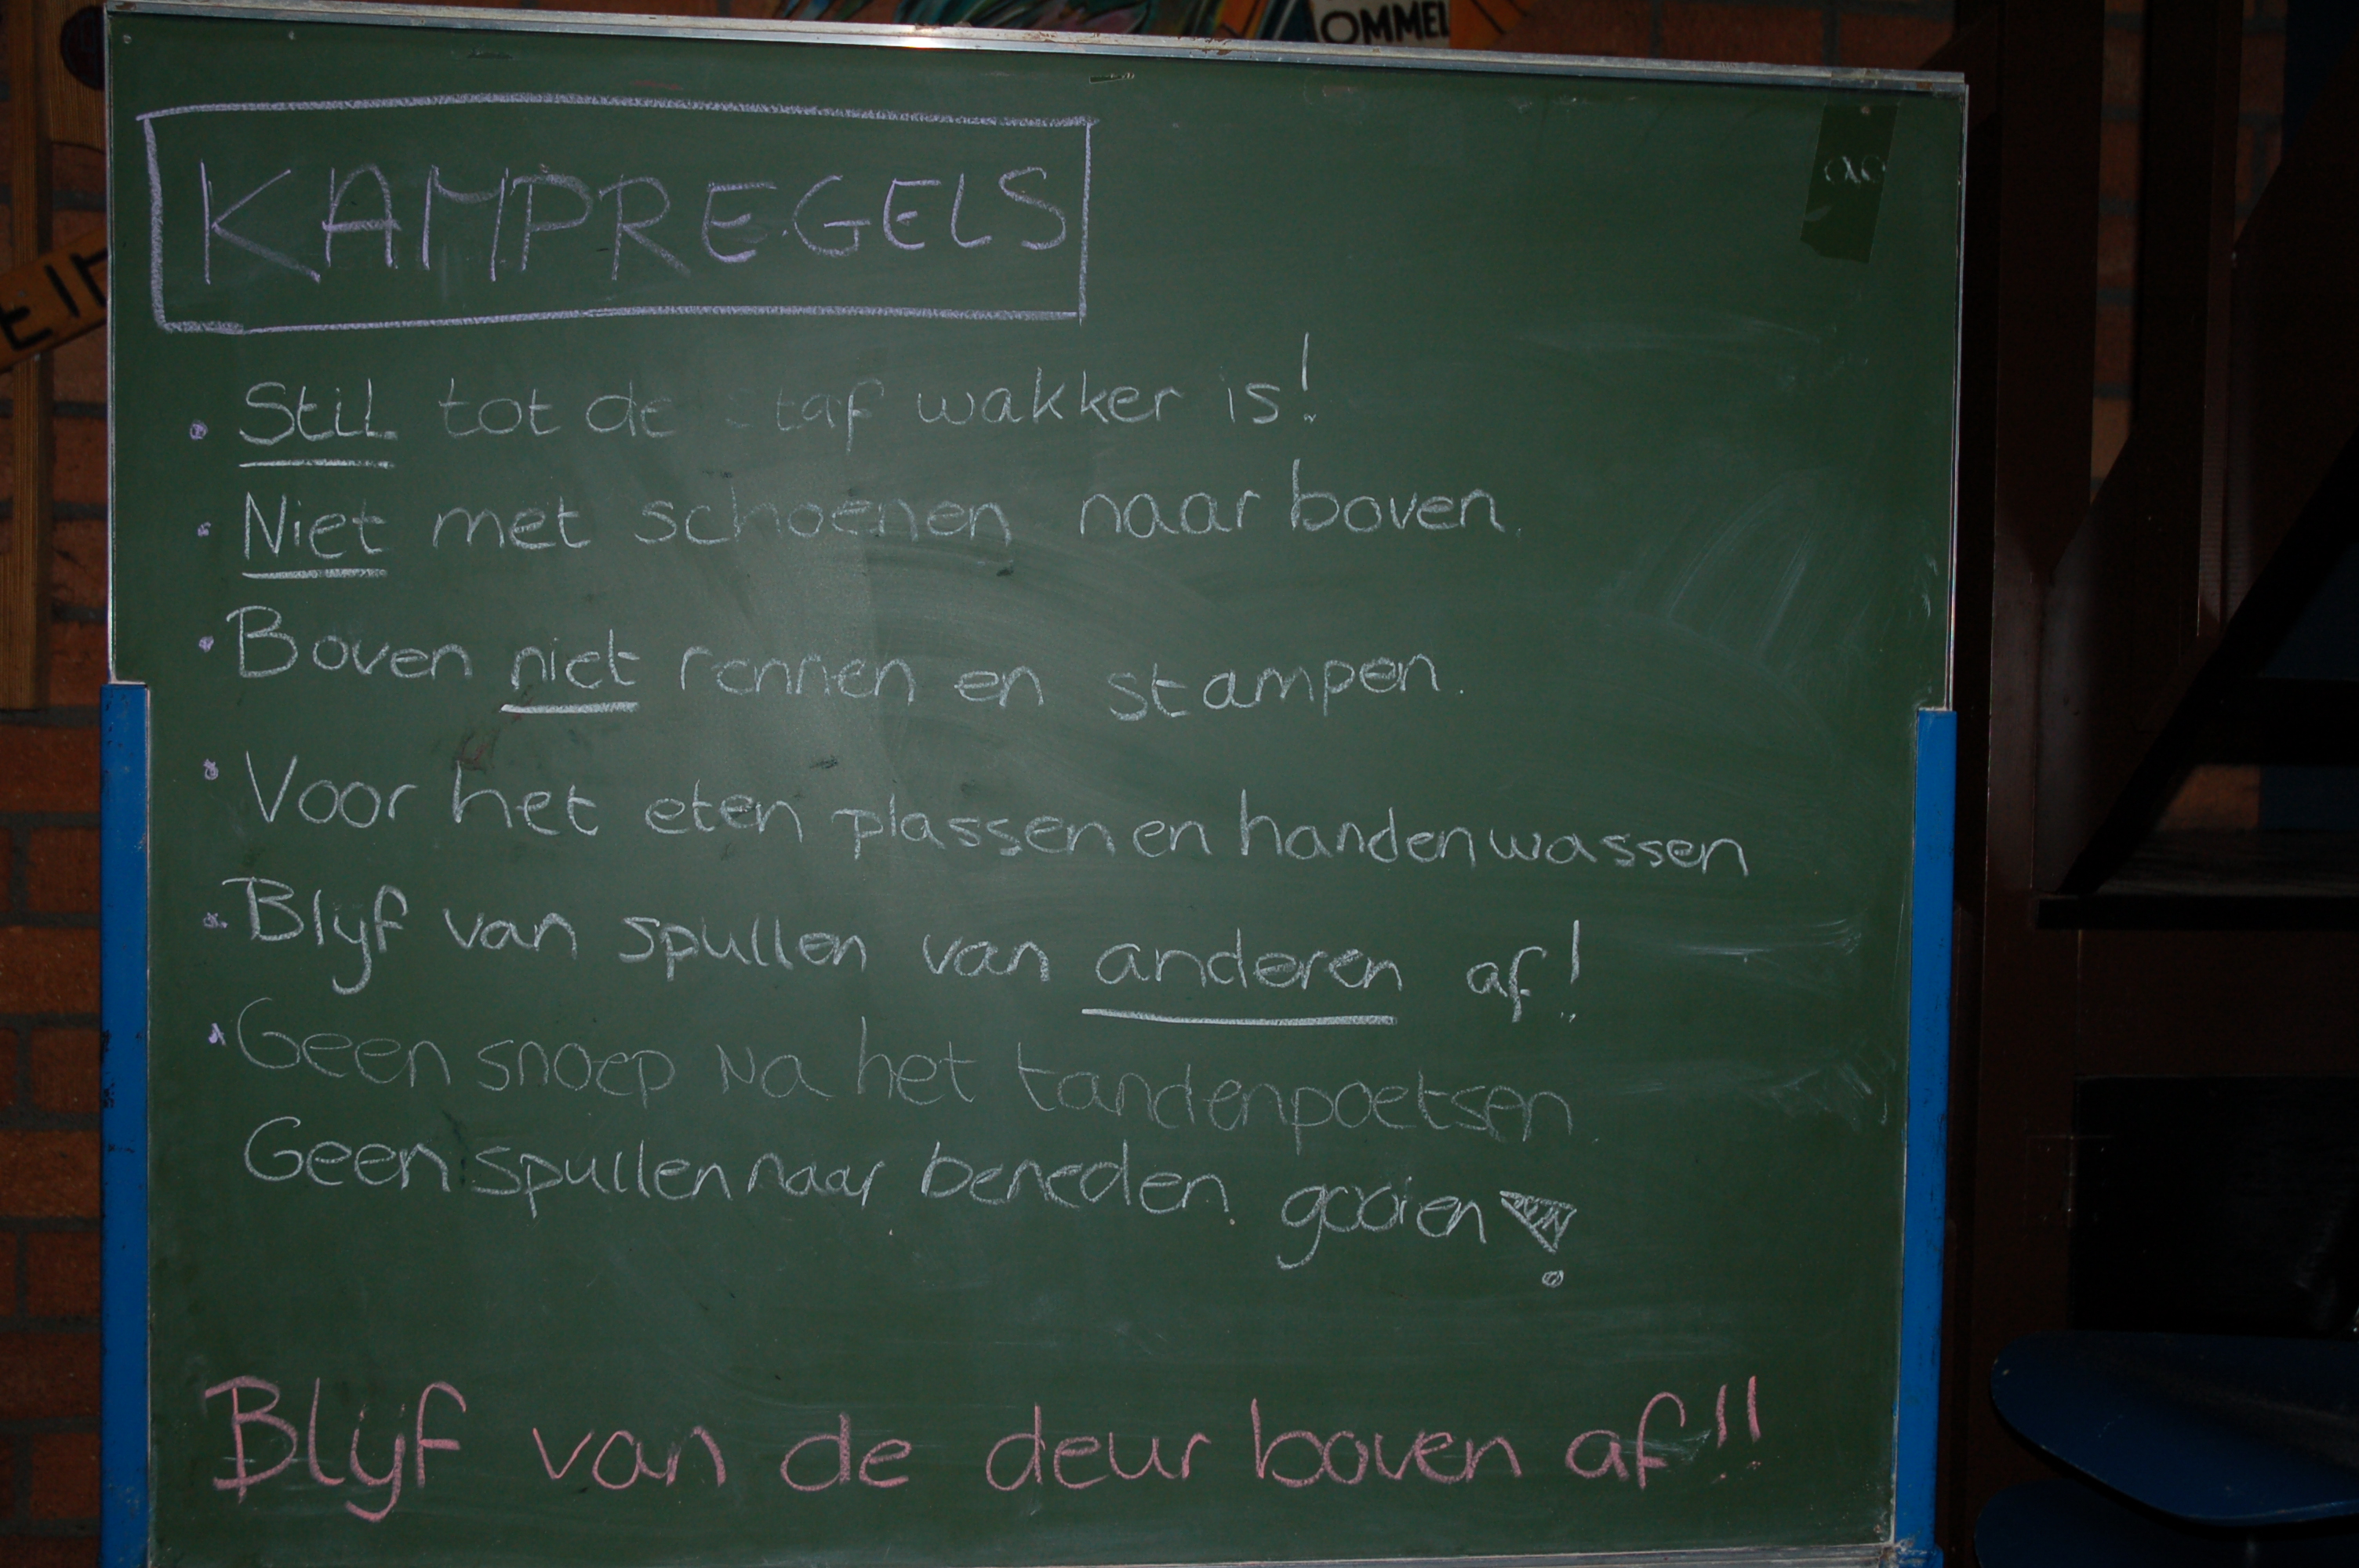 OMMEL
KAMPREGELS
• Stil tot de staf wakker is!
• Niet met schoenen naar boven.
• Boven niet rennen en stampen.
• Voor het eten plassen en handen wassen
• Blijf van spullen van anderen af!
• Geen snoep na het tandenpoetsen.
Geen spullen naar beneden gooien!
Blijf van de deur boven af!!